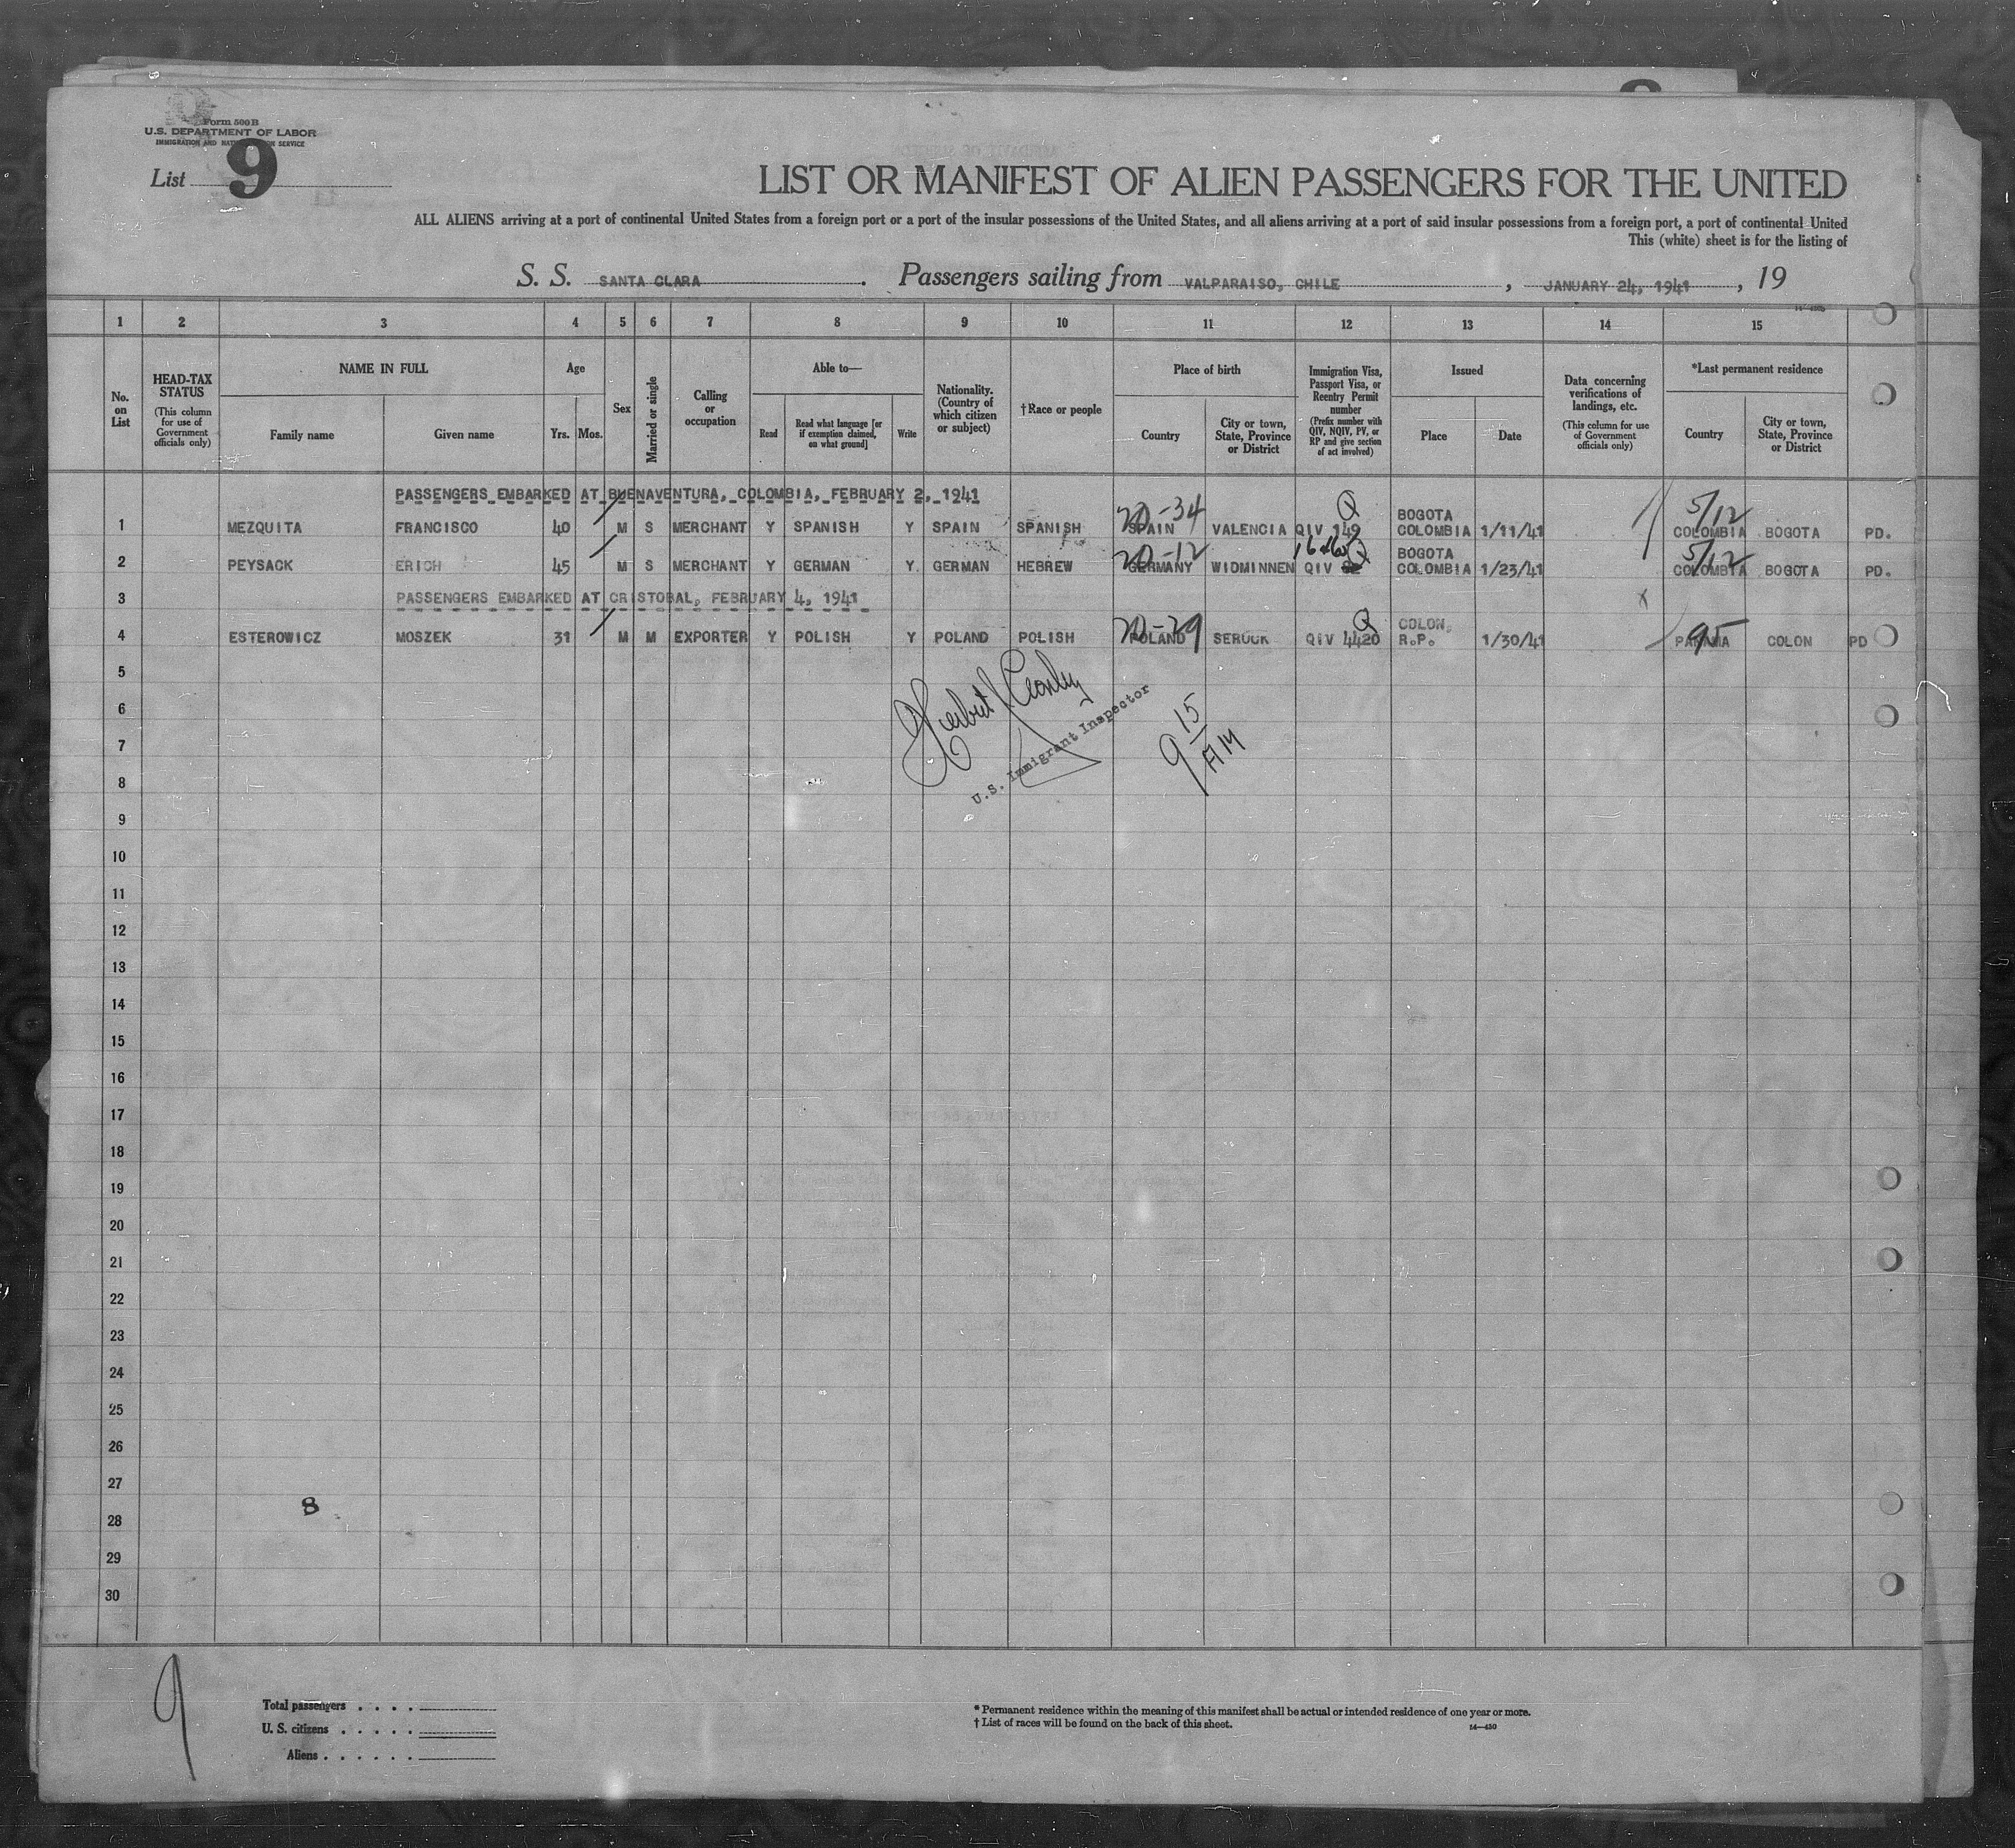 Form 500 B
U.S. DEPARTMENT OF LABOR
IMMIGRATION AND NATURALIZATION SERVICE
List 9
LIST OR MANIFEST OF ALIEN PASSENGERS FOR THE UNITED
ALL ALIENS arriving at a port of continental United States from a foreign port or a port of the insular possessions of the United States, and all aliens arriving at a port of said insular possessions from a foreign port, a port of continental United
This (white) sheet is for the listing of
S. S. SANTA CLARA. Passengers sailing from VALPARAISO, CHILE, JANUARY 24, 1941, 19
1 2 3 4 5 6 7 8 9 10 11 12 13 14 15
No. on List
HEAD-TAX STATUS (This column for use of Government officials only)
NAME IN FULL
Family name Given name
Age
Yrs. Mos.
Sex
Married or single
Calling or occupation
Able to—
Read
Read what language [or if exemption claimed, on what ground]
Write
Nationality. (Country of which citizen or subject)
†Race or people
Place of birth
Country
City or town, State, Province or District
Immigration Visa, Passport Visa, or Reentry Permit number (Prefix number with QIV, NQIV, PV, or RP and give section of act involved)
Issued
Place Date
Data concerning verifications of landings, etc. (This column for use of Government officials only)
*Last permanent residence
Country
City or town, State, Province or District
PASSENGERS EMBARKED AT BUENAVENTURA, COLOMBIA, FEBRUARY 2, 1941
20-34 Q BOGOTA 5/12
1 MEZQUITA FRANCISCO 40 M S MERCHANT Y SPANISH Y SPAIN SPANISH SPAIN VALENCIA QIV 149 COLOMBIA 1/11/41 COLOMBIA BOGOTA PD.
20-12 Q BOGOTA 5/12
2 PEYSACK ERICH 45 M S MERCHANT Y GERMAN Y. GERMAN HEBREW GERMANY WIDMINNEN QIV COLOMBIA 1/23/41 COLOMBIA BOGOTA PD.
3 PASSENGERS EMBARKED AT CRISTOBAL, FEBRUARY 4, 1941 x
20-29 Q COLON, 95
4 ESTEROWICZ MOSZEK 31 M M EXPORTER Y POLISH Y POLAND POLISH POLAND SEROCK QIV 4420 R.P. 1/30/41 PANAMA COLON PD
5
6
7
8
U.S. Immigrant Inspector
9 15 AM
9
10
11
12
13
14
15
16
17
18
19
20
21
22
23
24
25
26
27
8
28
29
30
9
Total passengers . . . .
U. S. citizens . . . . .
Aliens . . . . . .
* Permanent residence within the meaning of this manifest shall be actual or intended residence of one year or more.
† List of races will be found on the back of this sheet.
14—430